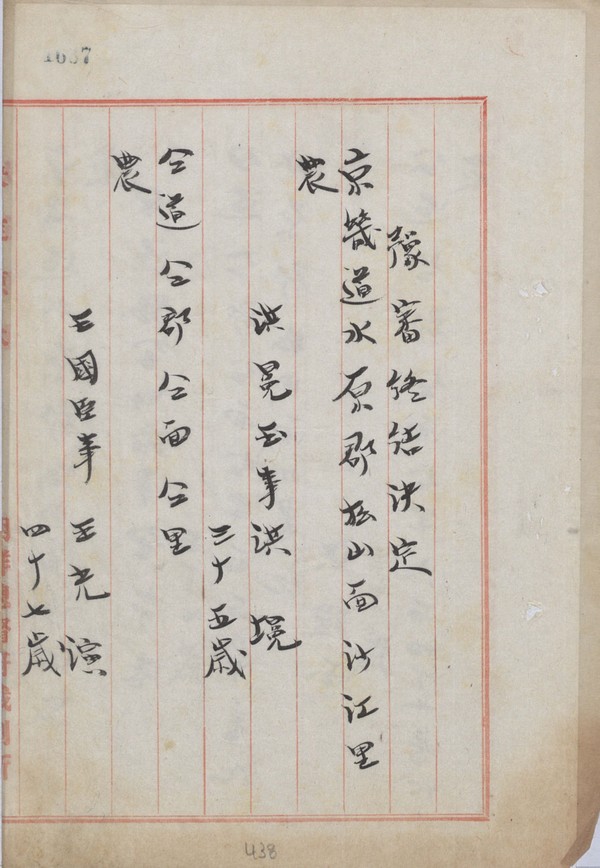 1637
豫審終結決定
京畿道水原郡松山面沙江里
農
洪冕玉事洪
三十五歳
仝道仝郡仝面仝里
農
王國臣事王光演
四十七歳
438